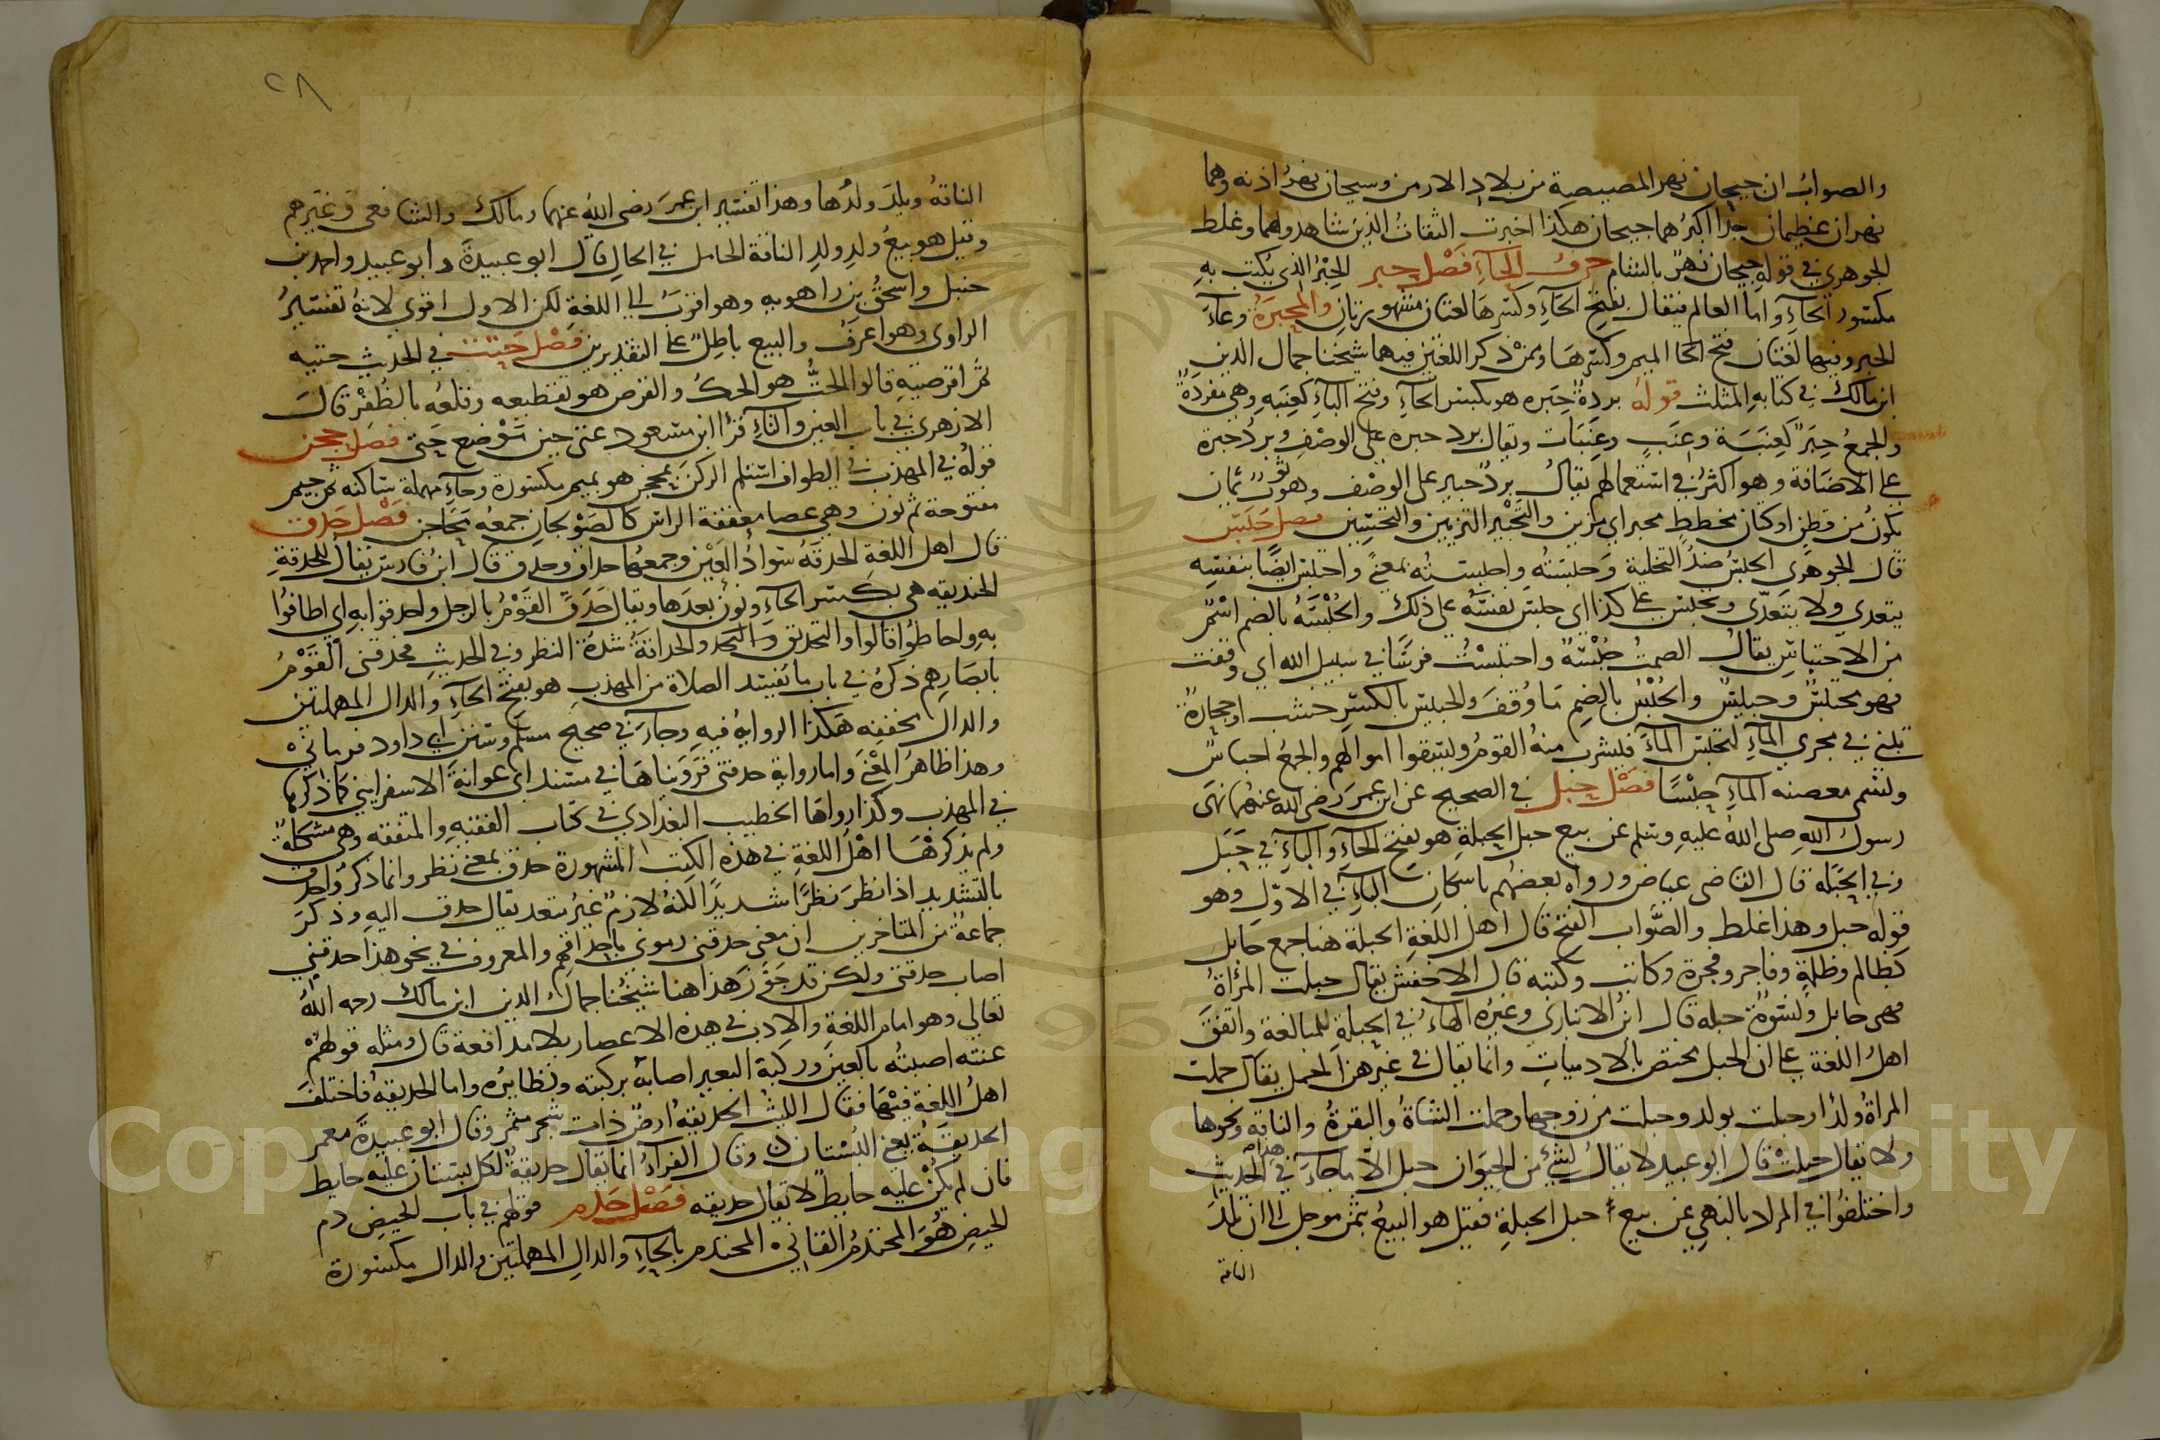 والصواب ان جيحان نهر المصيصة من بلاد الارمن وسيحان نهر اذنه وهما
نهران عظيمان جدا اكبرهما جيحان هكذا اخبرت الثقات الذين شاهدوهما وغلط
الجوهري في قوله جيحان نهر بالشام حرف الحاء فصل حبر الحبر الذي يكتب به
مكسور الحاء واما العالم فيقال بفتح الحاء وكسرها لغتان مشهورتان والمحبرة وعاء
الحبر وفيها لغتان فتح الميم وكسرها وممن ذكر اللغتين فيهما شيخنا جمال الدين
ابن مالك في كتابه المثلث قوله بردة حبره هو بكسر الحاء وفتح الباء كعنبه وهي مفردة
والجمع حبر كعنبة وعنب وعنبات ويقال برد حبره على الوصف وبرد حبرة
على الاضافة وهو اكثر في استعمالهم يقال برد حبير على الوصف وهو ثوب يمان
يكون من قطن او كان مخطط محبر اي مزين والتحبير التزيين والتحسين فصل حبس
قال الجوهري الحبس ضد التخلية وحبسته واحتبسته بمعنى واحتبس ايضا بنفسه
يتعدى ولا يتعدى وتحبس على كذا اي حبس نفسه على ذلك والحبسة بالضم اسم
من الاحتباس يقال الصمت حبسة واحتبست فرسا في سبيل الله اي وقفت
فهو محتبس وحبيس والحبس بالضم ما وقف والحبس بالكسر خشب او حجارة
تبنى في مجرى الماء لتحبس الماء فيشرب منه القوم وليسقوا اموالهم والجمع احباس
وتسمى مصنعه الماء حبسا فصل حبل في الصحيح عن ابن عمر رضي الله عنهما نهى
رسول الله صلى الله عليه وسلم عن بيع حبل الحبلة هو بفتح الحاء والباء في حبل
وفي الحبلة قال القاضي عياض ورواه بعضهم باسكان الباء في الاول وهو
قوله حبل وهذا غلط والصواب الفتح قال اهل اللغة الحبلة هنا جمع حابل
كظالم وظلمة وفاجر وفجرة وكاتب وكتبه قال الاخفش يقال حبلت المرأة
فهي حابل ونسوة حبله قال ابن الانباري وغيره الهاء في الحبلة للمبالغة واتفق
اهل اللغة على ان الحبل مختص بالادميات وانما يقال في غيرهن الحمل يقال حملت
المراة ولدا وحبلت بولد وحبلت من زوجها وحملت الشاة والبقرة والناقة ونحوها
ولا يقال حبلت قال ابو عبيد لا يقال لشئ من الحيوان حبل الا ما جاء في هذا الحديث
واختلفوا في المراد بالنهي عن بيع حبل الحبلة فقيل هو البيع بثمن موجل الى ان تلد
الناقة
٢٨
الناقة ويلد ولدها وهذا تفسير ابن عمر رضي الله عنهما ومالك والشافعي وغيرهم
وقيل هو بيع ولد ولد الناقة الحامل في الحال قال ابو عبيدة وابو عبيد واحمد بن
حنبل واسحق بن راهويه وهو اقرب الى اللغة لكن الاول اقوى لانه تفسير
الراوي وهو اعرف والبيع باطل على التقديرين فصل حتت في الحديث حتيه
ثم اقرصيه قالوا الحت هو الحك والقرص هو تقطيعه وقلعه بالظفر قال
الازهري في باب العين والتاء قرا ابن مسعود عتى حين في موضع حتى فصل حجن
قوله في المهذب في الطواف استلم الركن بمحجن هو بميم مكسورة وحاء مهملة ساكنه ثم جيم
مفتوحة ثم نون وهي عصا معقفة الراس كالصولجان جمعه محاجن فصل حدق
قال اهل اللغة الحدقة سواد العين وجمعها حداق وحدق قال ابن فارس يقال للحدقة
الحنديقه هي بكسر الحاء ونون بعدها ويقال حدق القوم بالرجل واحدقوا به اي اطافوا
به واحاطوا قالوا والتحديق شدة النظر وفي الحديث فحدقني القوم
بابصارهم ذكره في باب ما يفسد الصلاة من المهذب هو بفتح الحاء والدال المهملتين
والدال مخففه هكذا الرواية فيه وجاء في صحيح مسلم وسنن ابي داود فرماني
وهذا ظاهر المعنى واما رواية حدقني فرويناها في مسند ابي عوانة الاسفرايني كما ذكرها
في المهذب وكذا رواها الخطيب البغدادي في كتاب الفقيه والمتفقه وهي مشكلة
ولم يذكرها اهل اللغة في هذه الكتب المشهورة حدق بمعنى نظر وانما ذكروا حدق
بالتشديد اذا نظر نظرا شديدا لكنه لازم غير متعد يقال حدق اليه وذكر
جماعة من المتاخرين ان معنى حدقني رموني باحداقهم والمعروف في نحو هذا حدقني
اصاب حدقتي ولكن قد جوز هذا هنا شيخنا جمال الدين ابن مالك رحمه الله
تعالى وهو امام اللغة والادب في هذه الاعصار بلا مدافعة قال ومثله قولهم
عنته اصبته بالعين وركبة البعير اصابه بركبته ونظايره واما الحديقه فاختلف
اهل اللغة فيها فقال الليث الحديقه ارض ذات شجر مثمر وقال ابو عبيدة معمر
الحديقة يعني البستان وقال الفراء انما يقال حديقة لكل بستان عليه حايط
فان لم يكن عليه حايط لا يقال حديقه فصل حدم قولهم في باب الحيض دم
الحيض هو المحتدم القاني المحتدم بالحاء والدال المهملتين والدال مكسورة